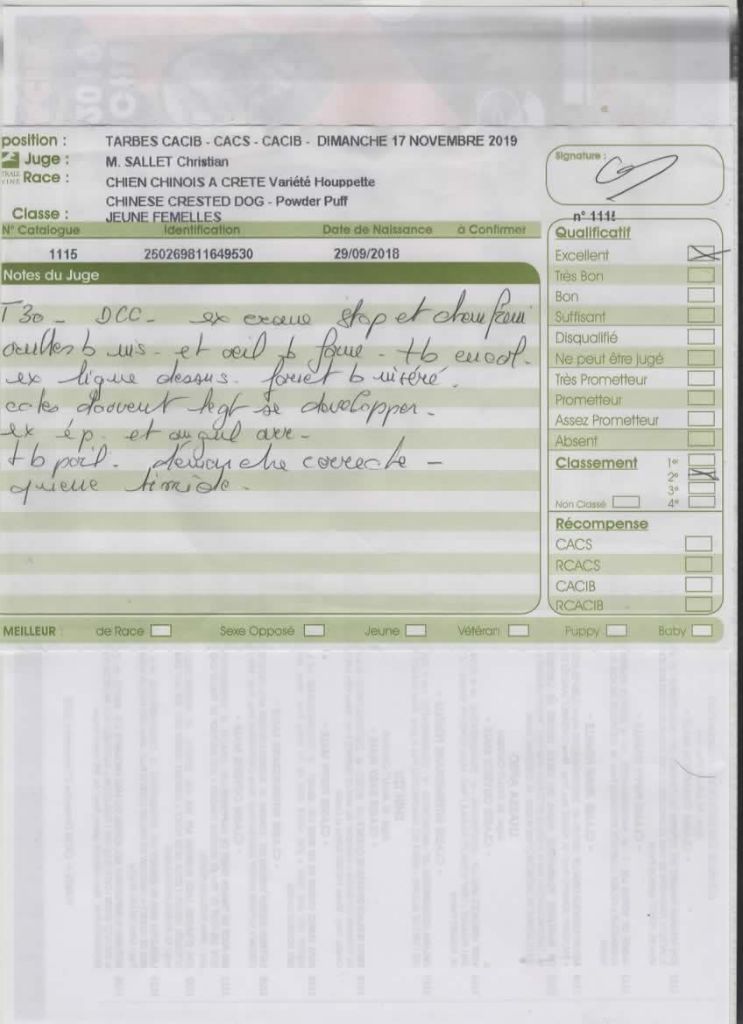 position : TARBES CACIB - CACS - CACIB - DIMANCHE 17 NOVEMBRE 2019
Juge : M. SALLET Christian
Race : CHIEN CHINOIS A CRETE Variété Houppette
CHINESE CRESTED DOG - Powder Puff
Classe : JEUNE FEMELLES
Signature :
n° 111
N° Catalogue Identification Date de Naissance à Confirmer
1115 250269811649530 29/09/2018
Notes du Juge
T 30 - DCC - ex crane stop et chanfrein
oreilles b et oeil b forme - tb encol.
ex ligne dessus. fouet b inséré.
cotes doivent legt se développer -
ex ép. et angul arr -
tb poil. démarche correcte -
timide.
Qualificatif
Excellent
Très Bon
Bon
Suffisant
Disqualifié
Ne peut être jugé
Très Prometteur
Prometteur
Assez Prometteur
Absent
Classement 1er
2e
3e
Non Classé 4e
Récompense
CACS
RCACS
CACIB
RCACIB
MEILLEUR : de Race Sexe Opposé Jeune Vétéran Puppy Baby